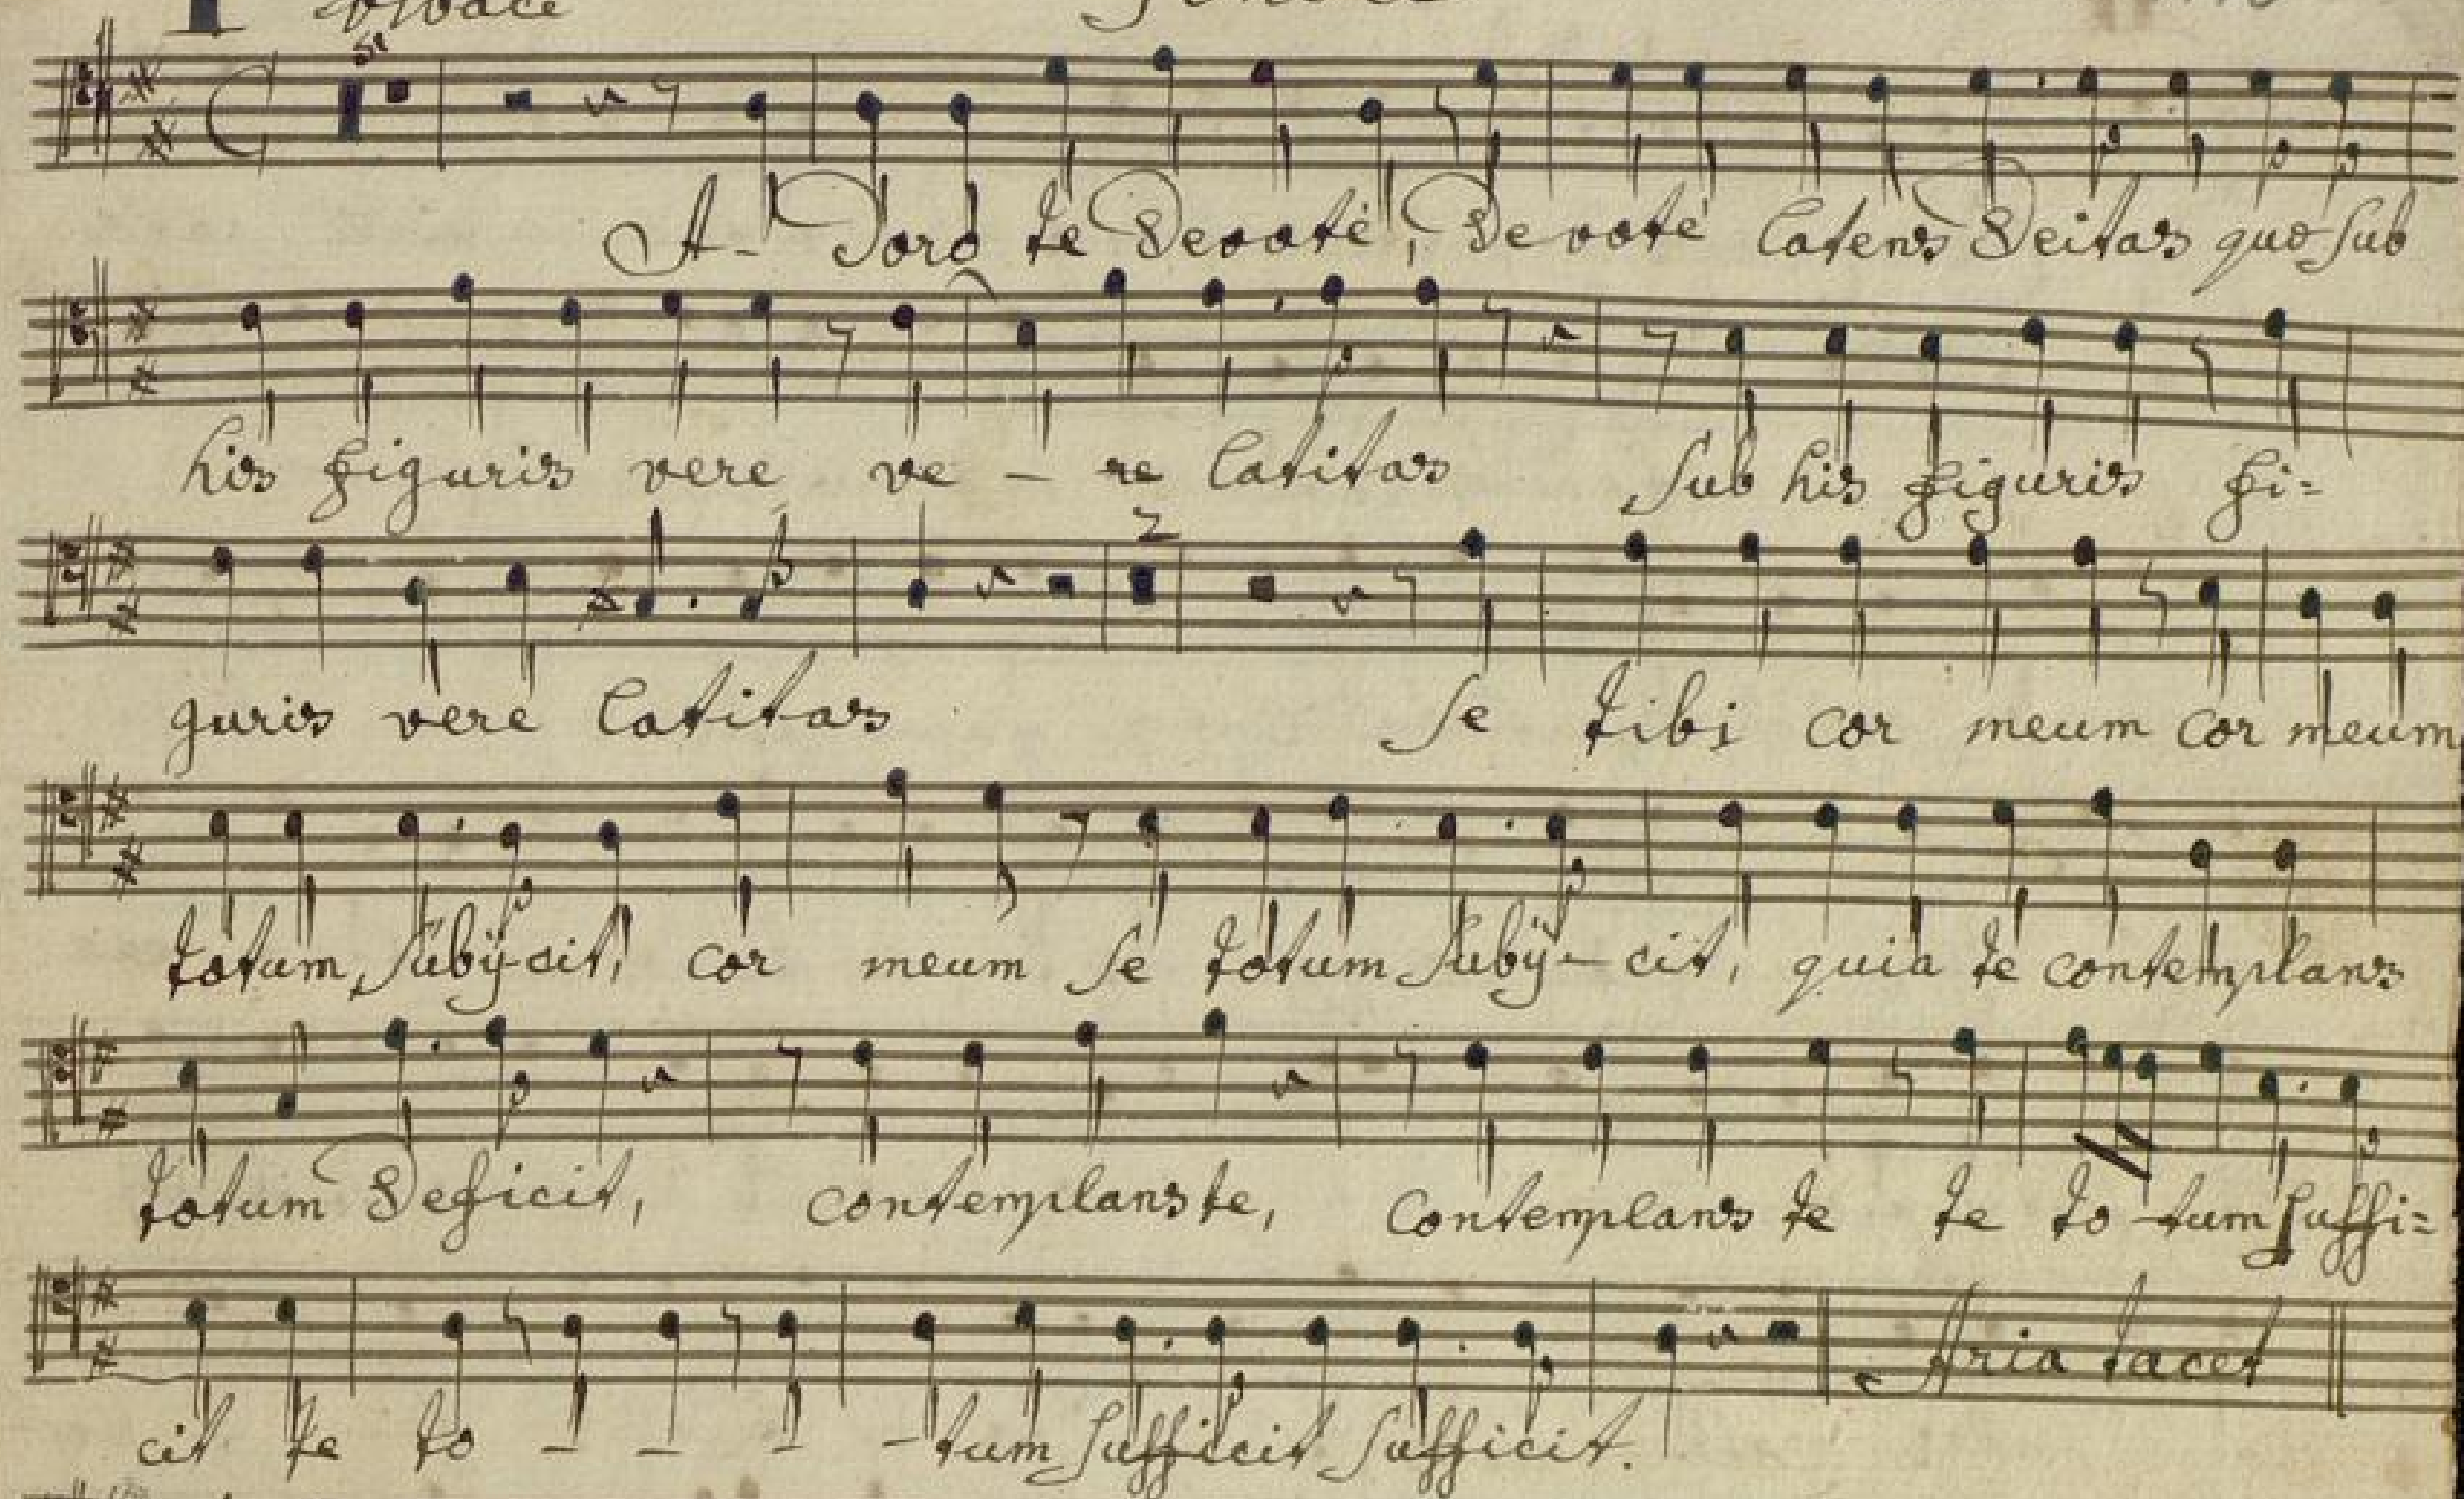 Vivace Tenore
A- Doro te Devotè, Devotè latens Deitas quæ sub
his figuris vere ve - re latitas sub his figuris fi=
guris vere latitas se tibi cor meum cor meum
totum subÿ-cit, cor meum se totum subÿ- cit, quia te contemplans
totum Deficit, contemplans te, contemplans te te to - tum suffi=
cit te to - - - - tum sufficit sufficit. Aria tacet